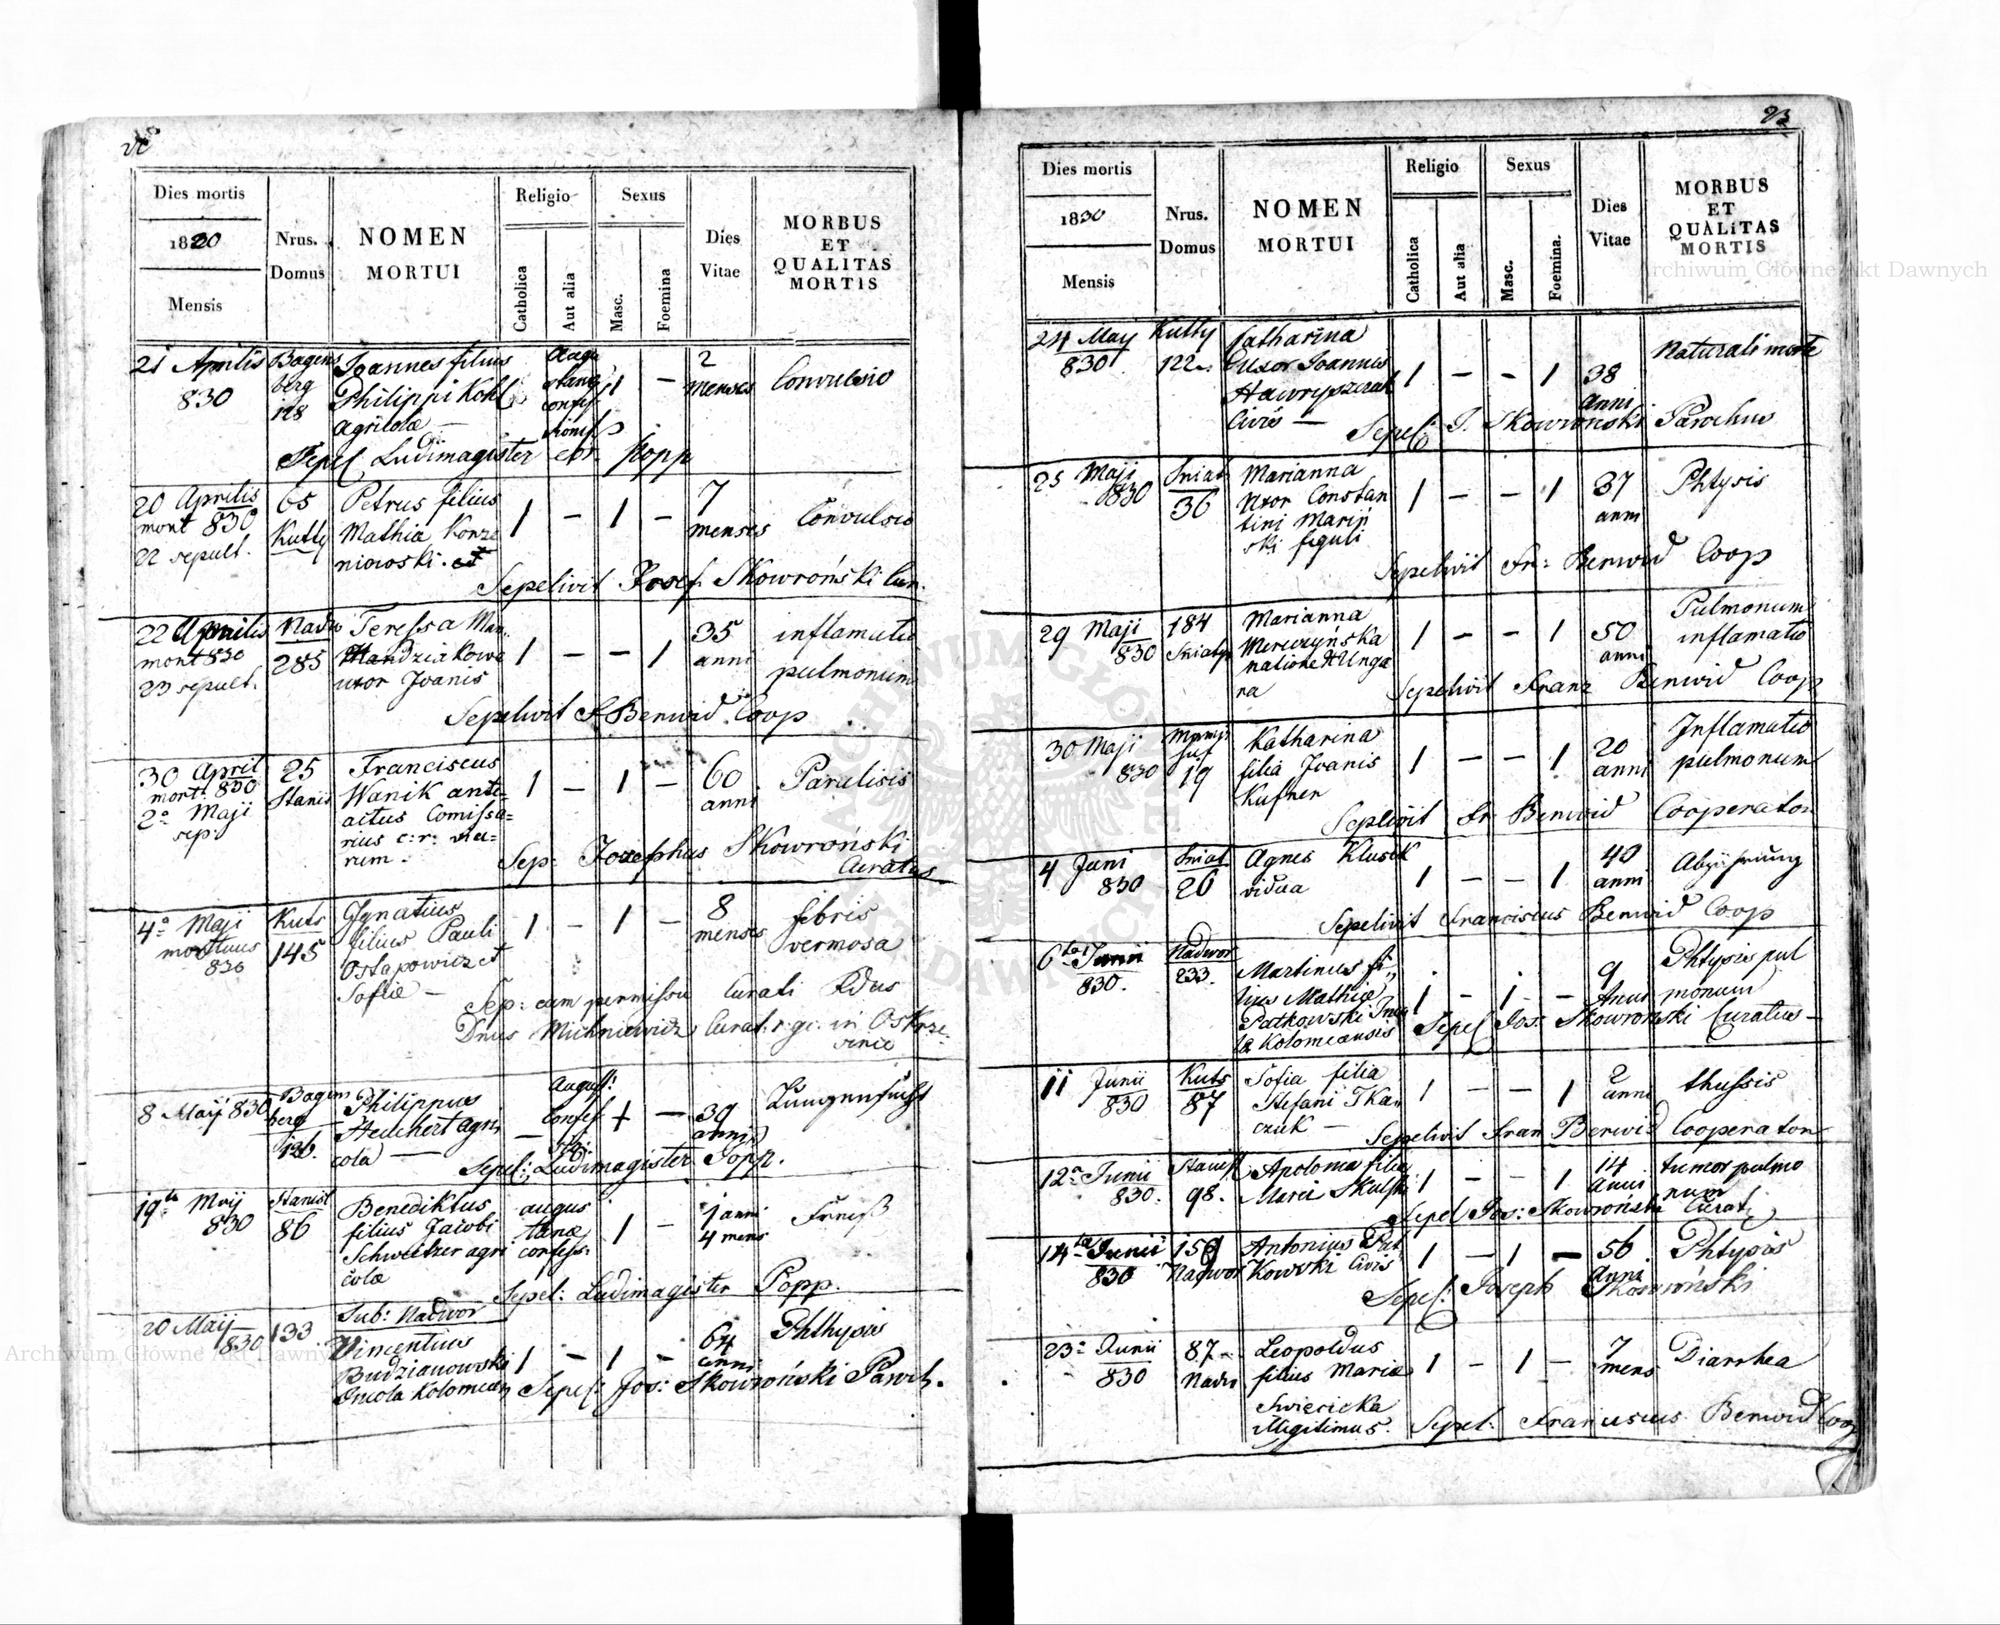 Dies mortis
1830
Mensis
Nrus.
Domus
NOMEN
MORTUI
Religio
Catholica
Aut alia
Sexus
Masc.
Foemina
Dies
Vitae
MORBUS
ET
QUALITAS
MORTIS
21 Aprilis
830
Bagens
berg
128
Joannes filius
Philippi Kohl
agricolæ —
Augu
stanæ
confes
sionis
1 —
2
menses
Convulsio
Sepel Ludimagister Popp
20 Aprilis
mort 830
22 sepult.
65
Kutty
Petrus filius
Mathia Korze
niowski.
1 — 1 —
7
menses
Convulsio
Sepelivit Josef Skowroński Cur.
22 Aprilis
mort 830
23 sepult.
Nadw
285
Teressa Man
dziakowa
uxor Joanis
1 — — 1
35
anni
inflamatio
pulmonum
Sepelivit F Berwid Coop
30 April
mort: 830
2a Maji
sep
25
Stanis
Franciscus
Wanik ante=
actus Comissa=
rius c: r: via-
rum -
1 — 1 —
60
anni
Paralisis
Sep: Josephus Skowroński
Curatus
4a Maji
mortuus
830
Kuts
145
Ignatius
filius Pauli
Ostapowicz et
Sofiæ —
1 — 1 —
8
menses
febris
vermosa
Sep: cum permissu Curati
Dnus Michniewicz Curat: r: gc: in Oskrze
8 Maij 830
Bagens
berg
126.
Philippus
Heuchert agri
cola —
August:
Confes
— + —
39
anni
Lungensucht
Sepel: Ludimagister Popp.
19ta Maij
830
Stanisl
86
Benediktus
filius Jacobi
Schweitzer agri
colæ
augus
tanæ
confess:
1 —
1 anni
4 mens
Sepel: Ludimagister Popp.
20 Maij
830
133
Sub: Nadwor
Vincentius
Budzianowski
Incola Kolomeen
1 — 1 —
64
anni
Phthysis
Sepel: Jos: Skowroński Paroch.
23
Dies mortis
1830
Mensis
Nrus.
Domus
NOMEN
MORTUI
Religio
Catholica
Aut alia
Sexus
Masc.
Foemina.
Dies
Vitae
MORBUS
ET
QUALITAS
MORTIS
24 May
830
Kutty
122
Catharina
Uxor Joannis
Civis —
1 — — 1
38
anni
Naturali morte
Sepel: J. Skowroński Parochus
25 Maji
830
Sniat
36
Marianna
Uxor Constan
tini Mariń
ski figuli
1 — — 1
37
anni
Phtysis
Sepelivit Fr: Berwid Coop
29 Maji
830
184
Sniatyn
Marianna
Merczyńska
natione Unga
ra
1 — — 1
50
anni
Pulmonum
inflamatio
Sepelivit Franz Berwid Coop
30 Maji
830
19
Katharina
filia Joanis
Kufner
1 — — 1
20
anni
Inflamatio
pulmonum
Seplivit Fr Berwid Cooperator
4 Juni
830
Sniat
26
Agnes Klusik
vidua
1 — — 1
40
anni
Abzehrung
Sepelivit Franciscus Berwid Coop
6ta Junii
830.
Nadwor
233.
Martinus fi
lius Mathiæ
Patkowski Inco
læ Kolomeansis
1 — 1 —
9
Anni
Phtysis pul
monum
Sepel Jos: Skowroński Curatus —
11 Junii
830
Kuts
87
Sofia filia
Stefani Tka
czuk —
1 — — 1
2
anni
thussis
Sepelivit Fran Berwid Cooperator
12a Junii
830.
Stanisl
98.
Apolonia filia
Marci Skulski
1 — — 1
14
anni
tumor pulmo
num
Sepel Jos: Skowroński Curat
14ta Junii
830
159
Nadwor
Antonius Pat
kowski Civis
1 — 1 —
56
Anni
Phtysis
Sepel: Joseph Skowroński
23a Junii
830
87
Nadw
Leopoldus
filius Mariæ
Swiericka
Illigitimus.
1 — 1 —
7
mens
Diarrhea
Sepel: Franciscus Berwid Coop
Archiwum Główne Akt Dawnych
Archiwum Główne Akt Dawnych
ARCHIWUM GŁÓWNE AKT DAWNYCH